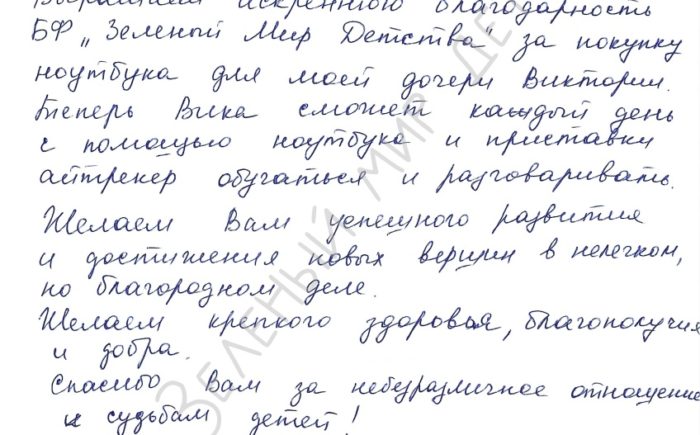 Выражаем искреннюю благодарность
БФ „Зеленый Мир Детства" за покупку
ноутбука для моей дочери Виктории.
Теперь Вика сможет каждый день
с помощью ноутбука и приставки
айтрекер обучаться и разговаривать.
Желаем Вам успешного развития
и достижения новых вершин в нелегком,
но благородном деле.
Желаем крепкого здоровья, благополучия
и добра.
Спасибо Вам за небезразличное отношение
к судьбам детей!
ЗЕЛЕНЫЙ МИР ДЕ